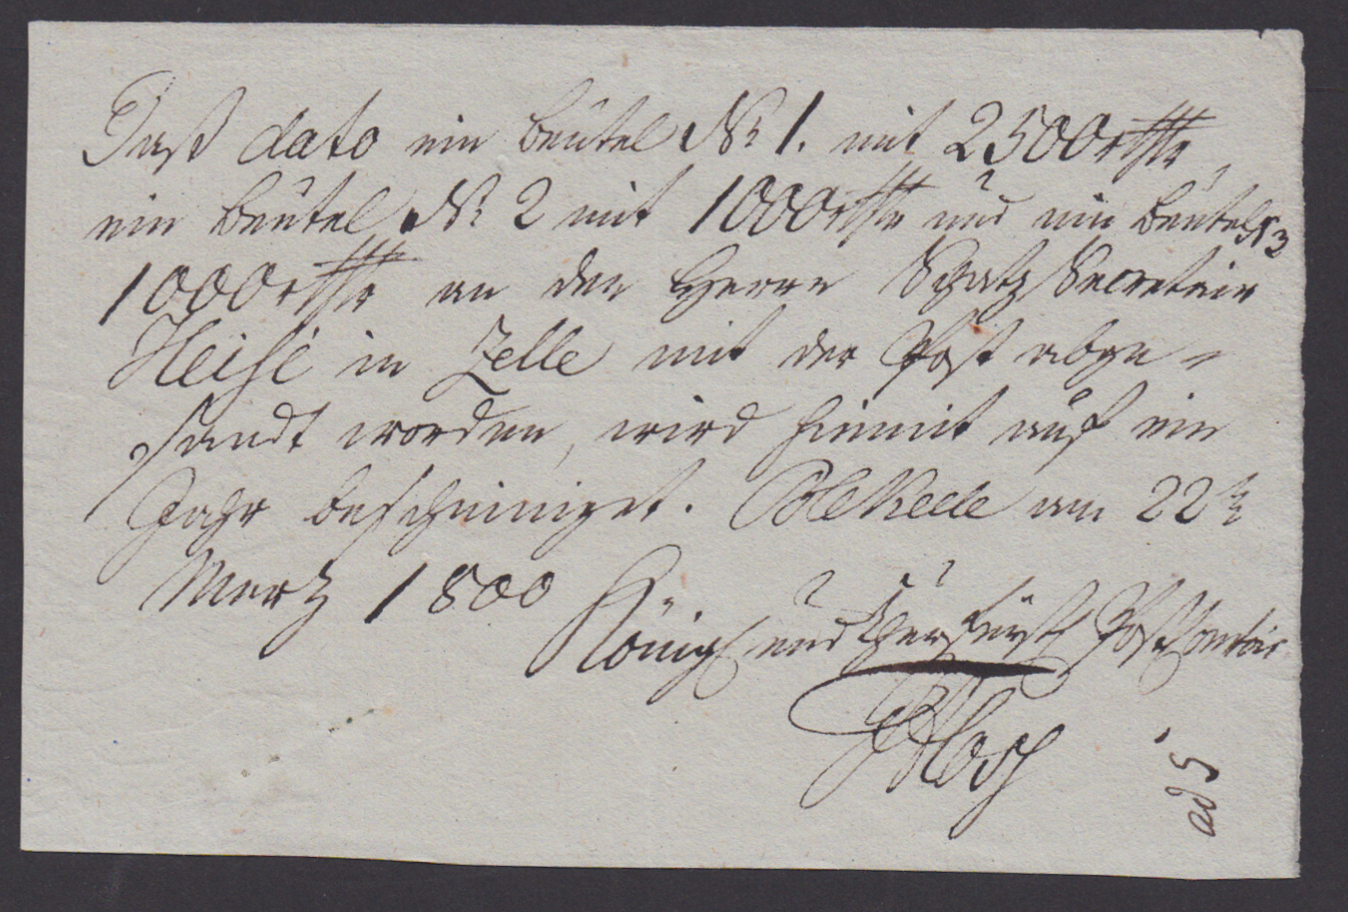 Daß dato ein beutel No 1. mit 2500 rthlr
ein beutel No 2 mit 1000 rthlr und ein beutel N 3
1000 rthlr an den Herrn Schatz Secretair
Heise in Zelle mit der Post abge-
sandt worden, wird hiemit auf ein
Jahr bescheiniget. Bleckede am 22t
Mertz 1800
Königl und Churfürstl Post Contoir
ad 5